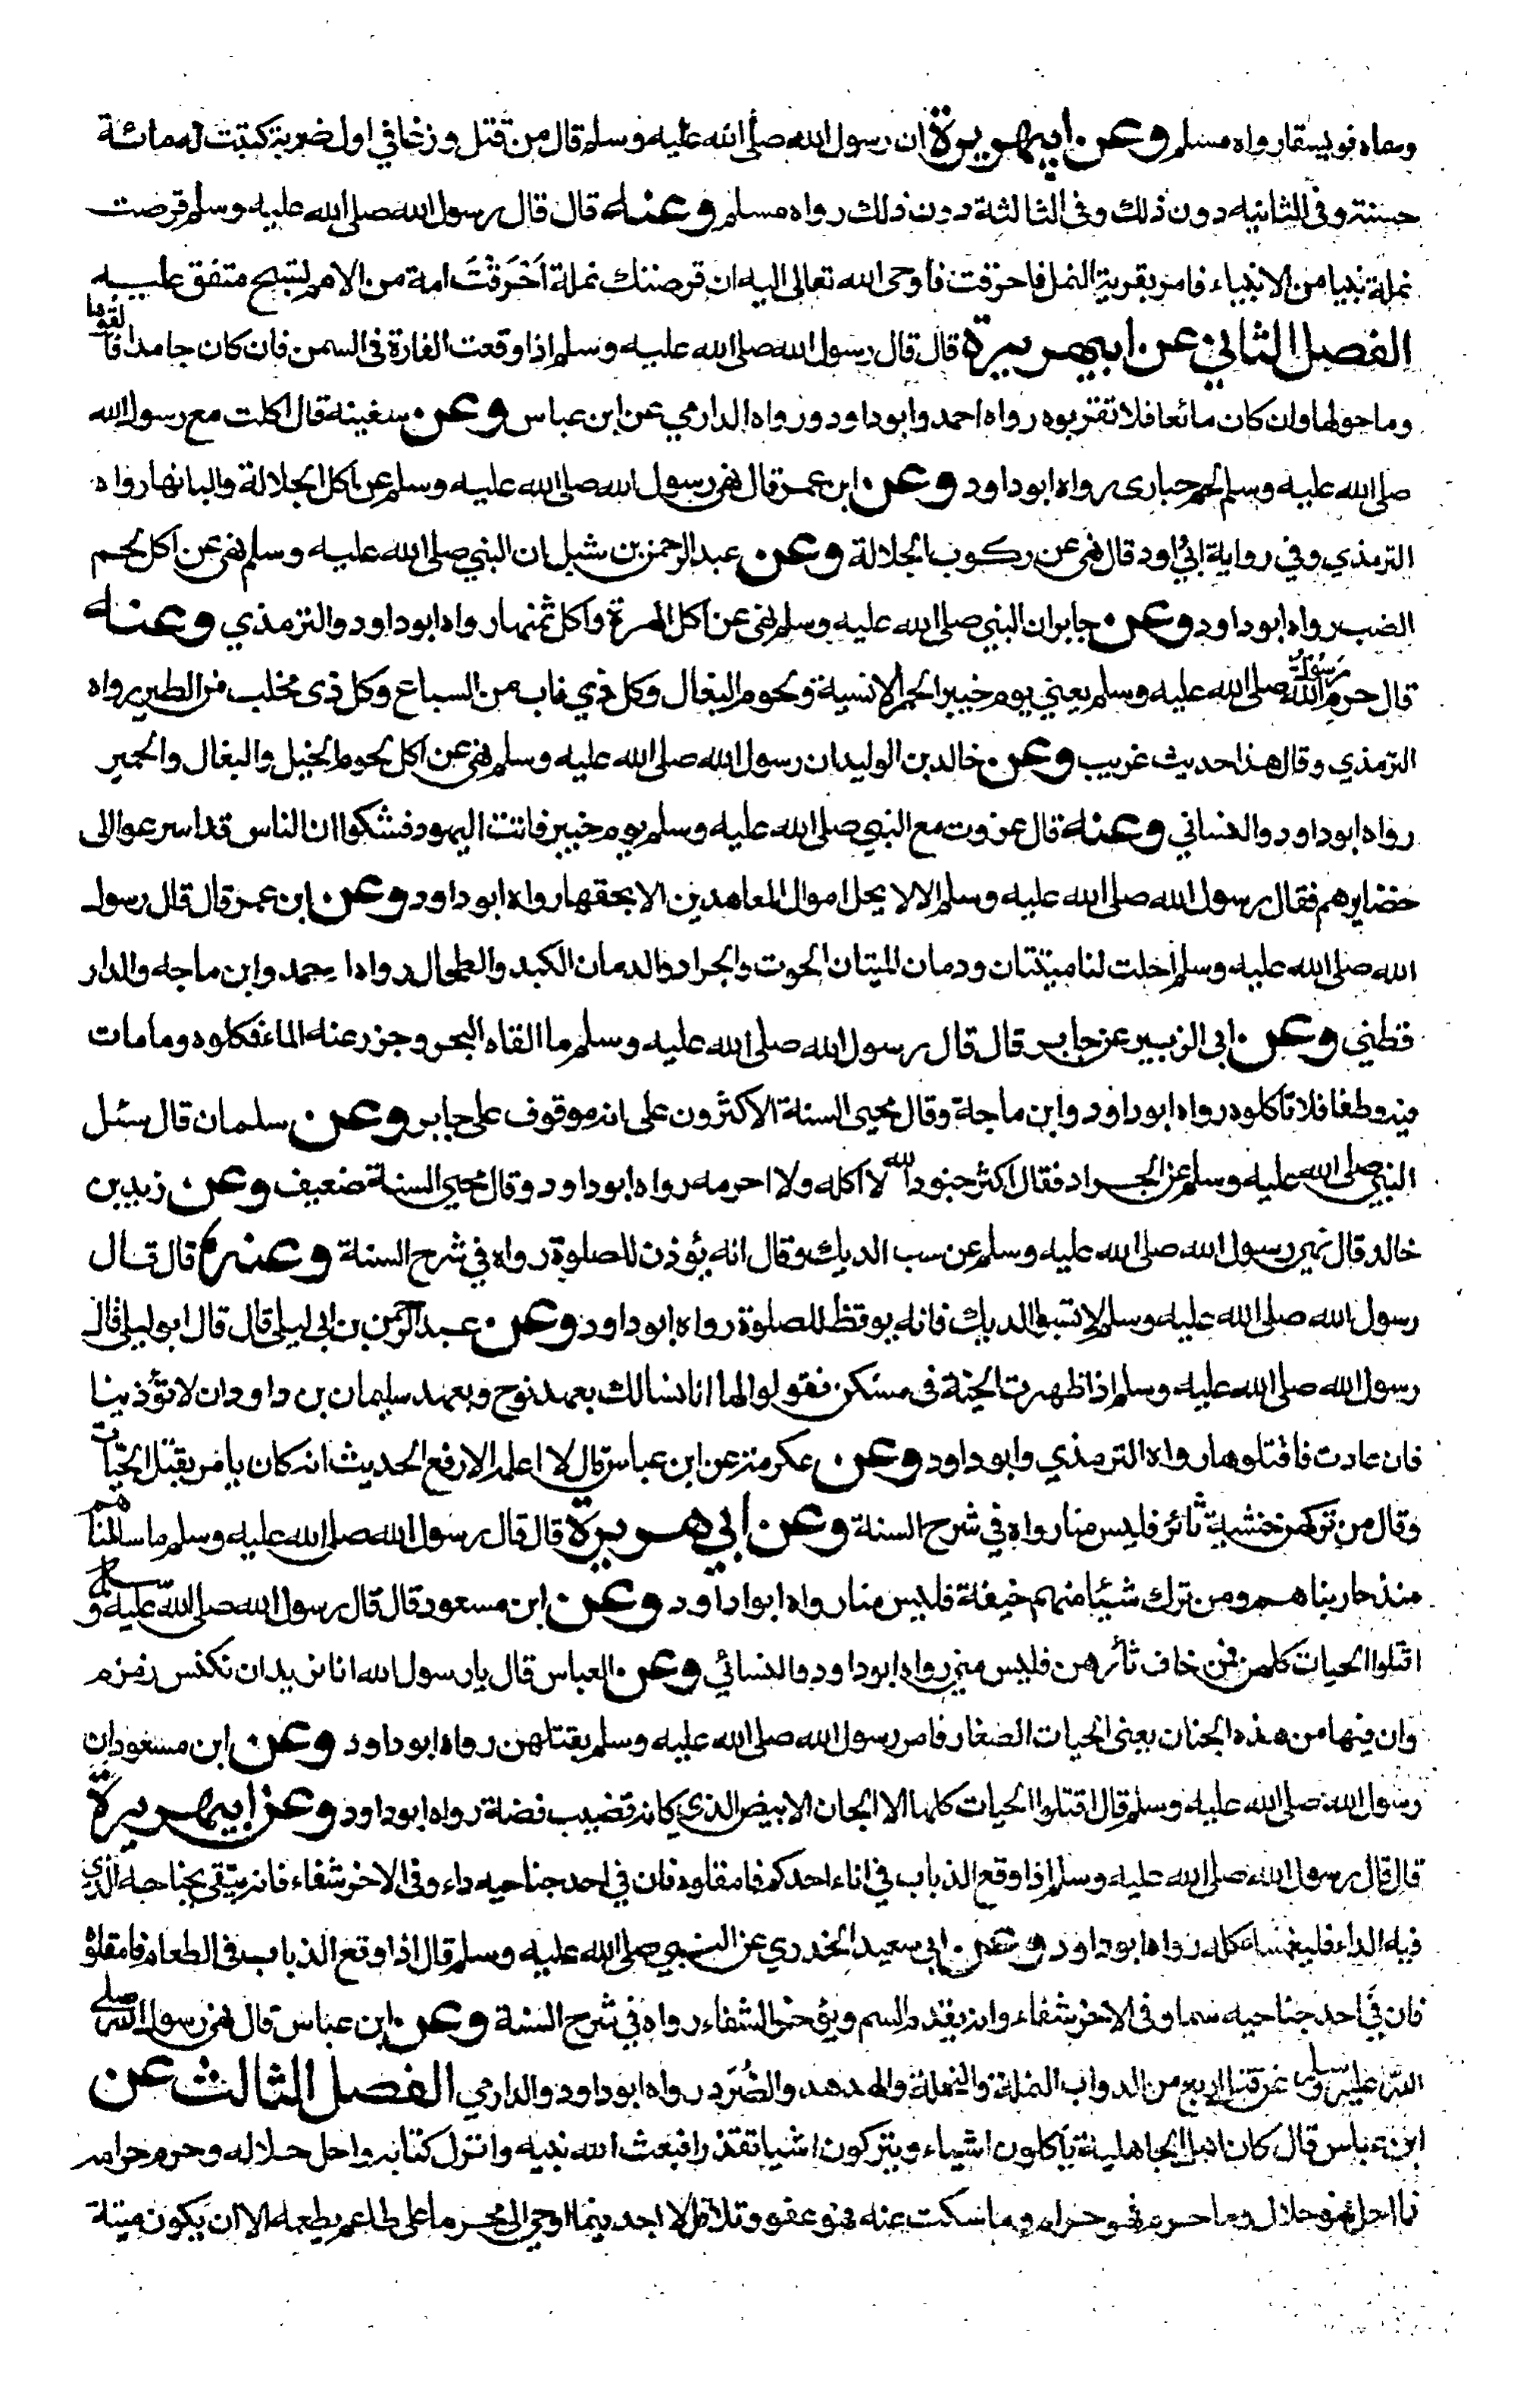 وسماه فويسقا رواه مسلم وعن ابيهريرة ان رسول الله صلى الله عليه وسلم قال من قتل وزغا في اول ضربة كتبت له مائة
حسنة وفي الثانية دون ذلك وفي الثالثة دون ذلك رواه مسلم وعنه قال قال رسول الله صلى الله عليه وسلم قرصت
نملة نبيا من الانبياء فامر بقرية النمل فاحرقت فاوحى الله تعالى اليه ان قرصتك نملة اَحْرَقْتَ امة من الامم تسبح متفق عليه
الفصل الثاني عن ابيهريرة قال قال رسول الله صلى الله عليه وسلم اذا وقعت الفارة في السمن فان كان جامدا فالقوها
وما حولها وان كان مائعا فلا تقربوه رواه احمد وابو داود ورواه الدارمي عن ابن عباس وعن سفينة قال اكلت مع رسول الله
صلى الله عليه وسلم لحم حبارى رواه ابو داود وعن ابن عمر قال نهى رسول الله صلى الله عليه وسلم عن اكل الجلالة والبانها رواه
الترمذي وفي رواية ابي داود قال نهى عن ركوب الجلالة وعن عبد الرحمن بن شبل ان النبي صلى الله عليه وسلم نهى عن اكل لحم
الضب رواه ابو داود وعن جابر ان النبي صلى الله عليه وسلم نهى عن اكل الهرة واكل ثمنها رواه ابو داود والترمذي وعنه
قال حرم رَسُولُ الله صلى الله عليه وسلم يعني يوم خيبر الحمر الانسية ولحوم البغال وكل ذي ناب من السباع وكل ذي مخلب من الطير رواه
الترمذي وقال هذا حديث غريب وعن خالد بن الوليد ان رسول الله صلى الله عليه وسلم نهى عن اكل لحوم الخيل والبغال والحمير
رواه ابو داود والنسائي وعنه قال غزوت مع النبي صلى الله عليه وسلم يوم خيبر فاتت اليهود فشكوا ان الناس قد اسرعوا الى
خضايرهم فقال رسول الله صلى الله عليه وسلم الا لا يحل اموال المعاهدين الا بحقها رواه ابو داود وعن ابن عمر قال قال رسول
الله صلى الله عليه وسلم احلت لنا ميتتان ودمان الميتتان الحوت والجراد والدمان الكبد والطحال رواه احمد وابن ماجه والدار
قطني وعن ابي الزبير عن جابر قال قال رسول الله صلى الله عليه وسلم ما القاه البحر وجزر عنه الماء فكلوه وما مات
فيه وطفا فلا تأكلوه رواه ابو داود وابن ماجة وقال محيي السنة الاكثرون على انه موقوف على جابر وعن سلمان قال سئل
النبي صلى الله عليه وسلم عن الجراد فقال اكثر جنود الله لا آكله ولا احرمه رواه ابو داود وقال محيي السنة ضعيف وعن زيد بن
خالد قال نهى رسول الله صلى الله عليه وسلم عن سب الديك وقال انه يؤذن للصلوة رواه في شرح السنة وعنه قال قال
رسول الله صلى الله عليه وسلم لا تسبوا الديك فانه يوقظ للصلوة رواه ابو داود وعن عبد الرحمن بن ابي ليلى قال قال ابو ليلى قال
رسول الله صلى الله عليه وسلم اذا ظهرت الحية في مسكن فقولوا لها انا نسالك بعهد نوح وبعهد سليمان بن داود ان لا تؤذينا
فان عادت فاقتلوها رواه الترمذي وابو داود وعن عكرمة عن ابن عباس قال لا اعلمه الا رفع الحديث انه كان يامر بقتل الحيات
وقال من تركهن خشية ثائر فليس منا رواه في شرح السنة وعن ابي هريرة قال قال رسول الله صلى الله عليه وسلم ما سالمناهم
منذ حاربناهم ومن ترك شيئا منهم خيفة فليس منا رواه ابو داود وعن ابن مسعود قال قال رسول الله صلى الله عليه وسلم
اقتلوا الحيات كلهن فمن خاف ثأرهن فليس مني رواه ابو داود والنسائي وعن العباس قال يا رسول الله انا نريد ان نكنس زمزم
وان فيها من هذه الجنان يعنى الحيات الصغار فامر رسول الله صلى الله عليه وسلم بقتلهن رواه ابو داود وعن ابن مسعود ان
رسول الله صلى الله عليه وسلم قال اقتلوا الحيات كلها الا الجان الابيض الذي كانه قضيب فضة رواه ابو داود وعن ابيهريرة
قال قال رسول الله صلى الله عليه وسلم اذا وقع الذباب في اناء احدكم فامقلوه فان في احد جناحيه داء وفي الاخر شفاء فانه يتقي بجناحه الذي
فيه الداء فليغمسه كله رواه ابو داود وعن ابي سعيد الخدري عن النبي صلى الله عليه وسلم قال اذا وقع الذباب في الطعام فامقلوه
فان في احد جناحيه سما وفي الاخر شفاء وانه يقدم السم ويؤخر الشفاء رواه في شرح السنة وعن ابن عباس قال نهى رسول الله صلى
الله عليه وسلم عن قتل اربع من الدواب النملة والنحلة والهدهد والصُّرَد رواه ابو داود والدارمي الفصل الثالث عن
ابن عباس قال كان اهل الجاهلية يأكلون اشياء ويتركون اشيا تقذرا فبعث الله نبيه وانزل كتابه واحل حلاله وحرم حرامه
فما احل فهو حلال وما حرم فهو حرام وما سكت عنه فهو عفو وتلا قل لا اجد فيما اوحي الى محرما على طاعم يطعمه الا ان يكون ميتة